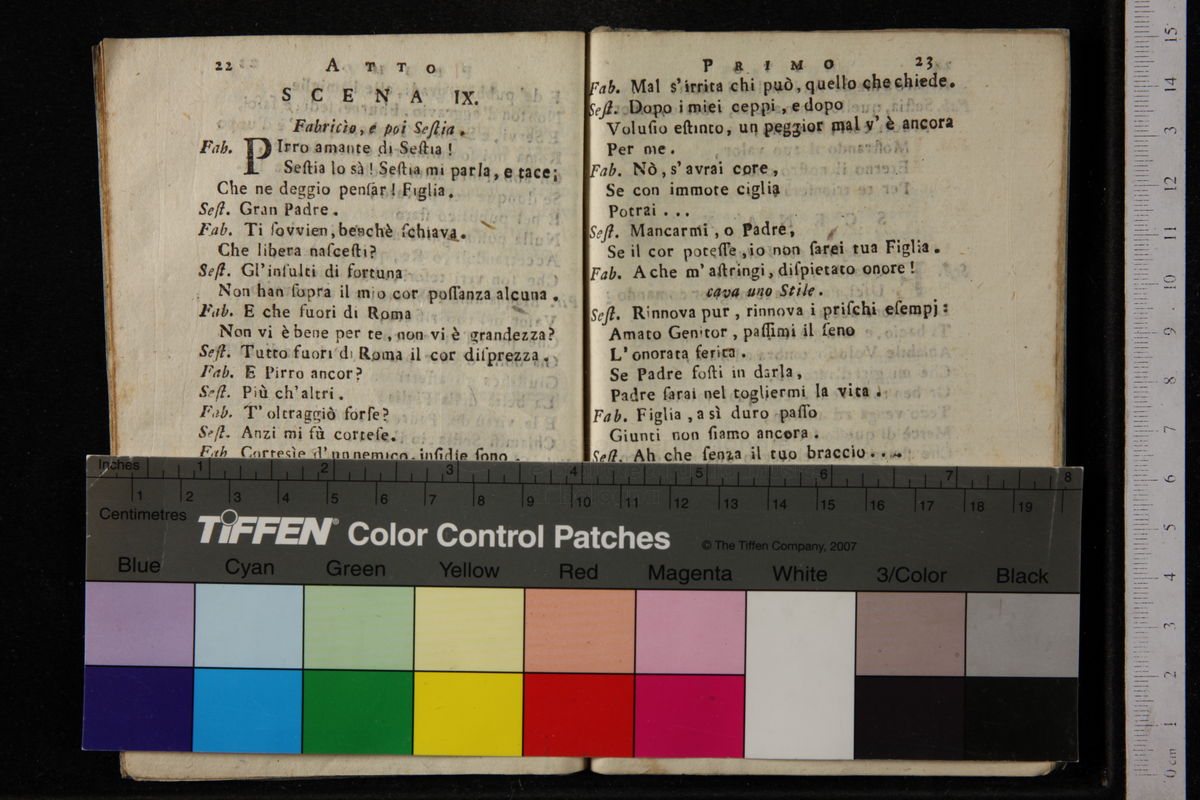 22 ATTO
SCENA IX.
Fabricio, e poi Seſtia.
Fab. PIrro amante di Seſtia!
Seſtia lo sà! Seſtia mi parla, e tace;
Che ne deggio penſar! Figlia.
Seſt. Gran Padre.
Fab. Ti ſovvien, benchè ſchiava.
Che libera naſceſti?
Seſt. Gl'inſulti di fortuna
Non han ſopra il mio cor poſſanza alcuna.
Fab. E che fuori di Roma
Non vi è bene per te, non vi è grandezza?
Seſt. Tutto fuori di Roma il cor diſprezza.
Fab. E Pirro ancor?
Seſt. Più ch'altri.
Fab. T'oltraggiò forſe?
Seſt. Anzi mi fù corteſe.
Fab. Corteſie d'un nemico, inſidie ſono.
PRIMO 23
Fab. Mal s'irrita chi può, quello che chiede.
Seſt. Dopo i miei ceppi, e dopo
Voluſio eſtinto, un peggior mal v'è ancora
Per me.
Fab. Nò, s'avrai core,
Se con immote ciglia
Potrai ...
Seſt. Mancarmi, o Padre,
Se il cor poteſſe, io non ſarei tua Figlia.
Fab. A che m'aſtringi, diſpietato onore!
cava uno Stile.
Seſt. Rinnova pur, rinnova i priſchi eſempj:
Amato Genitor, paſſimi il ſeno
L'onorata ferita.
Se Padre foſti in darla,
Padre ſarai nel togliermi la vita.
Fab. Figlia, a sì duro paſſo
Giunti non ſiamo ancora.
Seſt. Ah che ſenza il tuo braccio....
Inches 1 2 3 4 5 6 7 8
1 2 3 4 5 6 7 8 9 10 11 12 13 14 15 16 17 18 19
Centimetres
TIFFEN® Color Control Patches © The Tiffen Company, 2007
Blue Cyan Green Yellow Red Magenta White 3/Color Black
0 cm 1 2 3 4 5 6 7 8 9 10 11 12 13 14 15